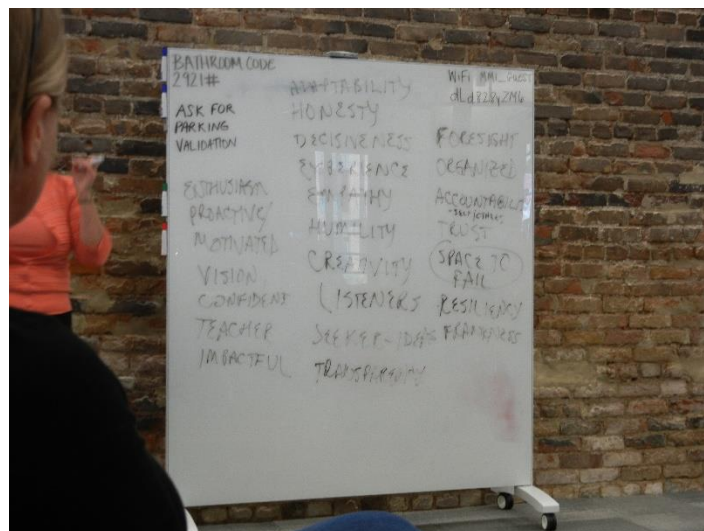 BATHROOM CODE
2921#
ASK FOR
PARKING
VALIDATION
ENTHUSIASM
PROACTIVE/
MOTIVATED
VISION
CONFIDENT
TEACHER
IMPACTFUL
ADAPTABILITY
HONESTY
DECISIVENESS
EXPERIENCE
EMPATHY
HUMILITY
CREATIVITY
LISTENERS
SEEKER-IDEAS
TRANSPARENCY
WiFi BML_GUEST
FORESIGHT
ORGANIZED
ACCOUNTABILITY
TRUST
SPACE TO
FAIL
RESILIENCY